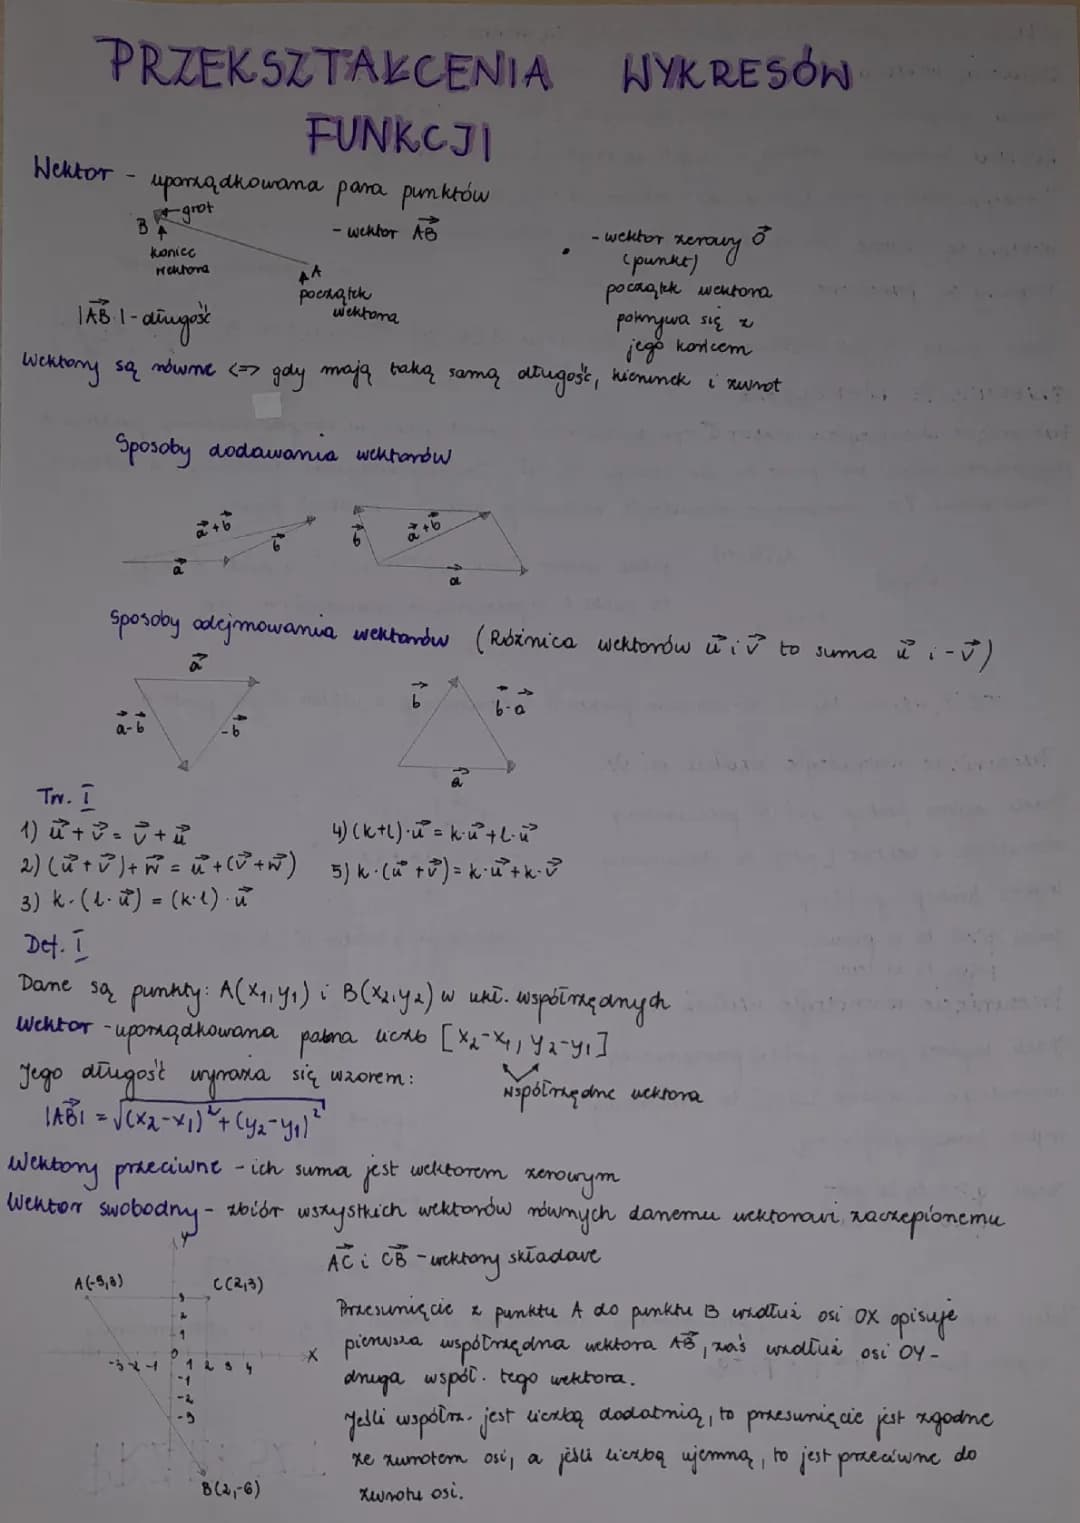 PRZEKSZTAŁCENIA WYKRESÓW
FUNKCJI
Wektor - uporządkowana para punktów
grot
B
koniec
wektora
- wektor A͞B⃗
A
początek
wektora
|AB⃗| - długość
- wektor zerowy 0⃗
(punkt)
początek wektora
pokrywa się z
jego końcem
Wektory są równe <=> gdy mają taką samą długość, kierunek i zwrot
Sposoby dodawania wektorów
a⃗+b⃗
b⃗
a⃗
b⃗
a⃗+b⃗
a⃗
Sposoby odejmowania wektorów (Różnica wektorów u⃗ i v⃗ to suma u⃗ i -v⃗)
a⃗
a⃗-b⃗
-b⃗
b⃗
b⃗-a⃗
a⃗
Tw. I
1) u⃗+v⃗ = v⃗+u⃗
2) (u⃗+v⃗)+w⃗ = u⃗+(v⃗+w⃗)
3) k·(l·u⃗) = (k·l)·u⃗
4) (k+l)·u⃗ = k·u⃗+l·u⃗
5) k·(u⃗+v⃗) = k·u⃗+k·v⃗
Def. I
Dane są punkty: A(x₁,y₁) i B(x₂,y₂) w ukł. współrzędnych
Wektor - uporządkowana para liczb [x₂-x₁, y₂-y₁]
Współrzędne wektora
Jego długość wyraża się wzorem:
|AB⃗| = √(x₂-x₁)²+(y₂-y₁)²
Wektory przeciwne - ich suma jest wektorem zerowym
Wektor swobodny - zbiór wszystkich wektorów równych danemu wektorowi zaczepionemu
AC⃗ i CB⃗ - wektory składowe
Y
A(-5,3)
C(2,3)
3
2
1
-3 -2 -1 0 1 2 3 4
X
-1
-2
-3
B(2,-6)
Przesunięcie z punktu A do punktu B wzdłuż osi OX opisuje
pierwsza współrzędna wektora AB⃗, zaś wzdłuż osi OY -
druga współ. tego wektora.
Jeśli współrz. jest liczbą dodatnią, to przesunięcie jest zgodne
ze zwrotem osi, a jeśli liczbą ujemną, to jest przeciwne do
zwrotu osi.